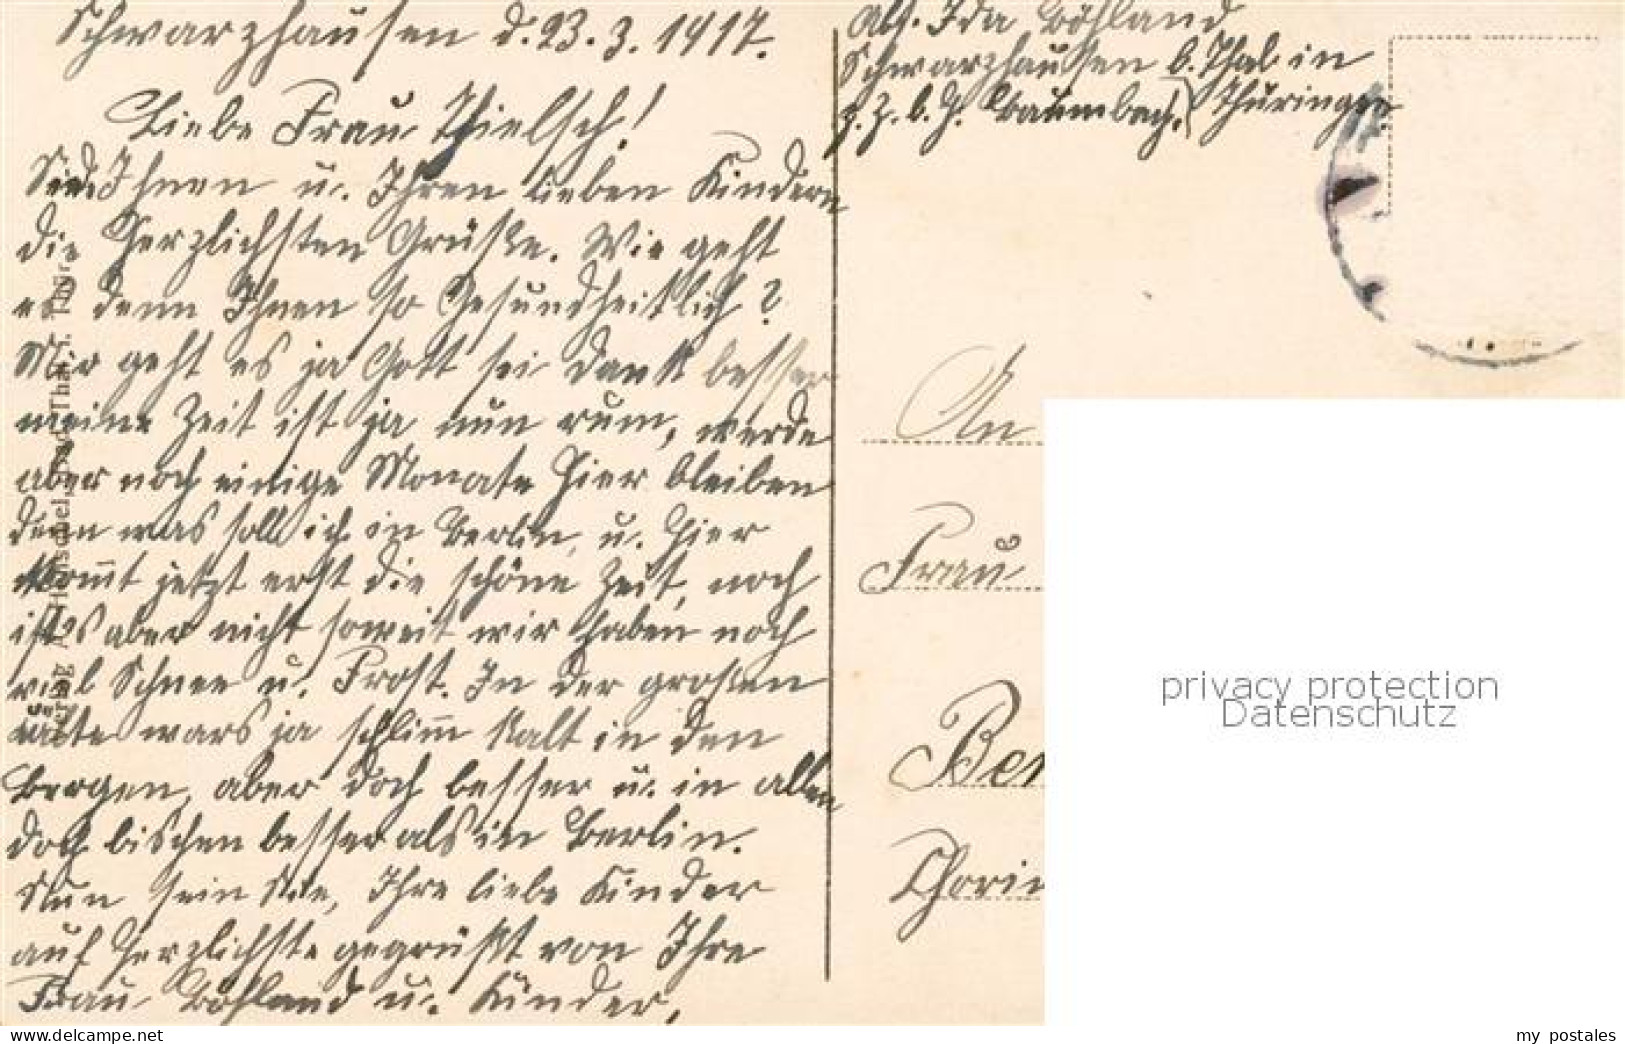 Schwarzhausen d. 23.3.1917.
Liebe Frau Thielsch!
Sende Ihnen u. Ihren lieben Kindern
die herzlichsten Grüße. Wie geht
es denn Ihnen so Gesundheitlich?
Mir geht es ja Gott sei dank besser
meine Zeit ist ja nun rum, werde
aber noch einige Monate hier bleiben
denn was soll ich in Berlin, u. hier
kommt jetzt erst die schöne Zeit, noch
ists aber nicht soweit wir haben noch
viel Schnee u. Frost. In der großen
Kälte wars ja schlimm kalt in den
Bergen, aber doch besser u. in allen
doch bischen besser als in Berlin.
Nun sein Sie, Ihre liebe Kinder
auf herzlichste gegrüßt von Ihre
Frau Böhland u. Kinder.
Abs. Ida Böhland
Schwarzhausen b. Thal in
z. Z. b. H. Baumbach.) Thüringen
An
Frau
Ber
Chorin
privacy protection
Datenschutz
my postales